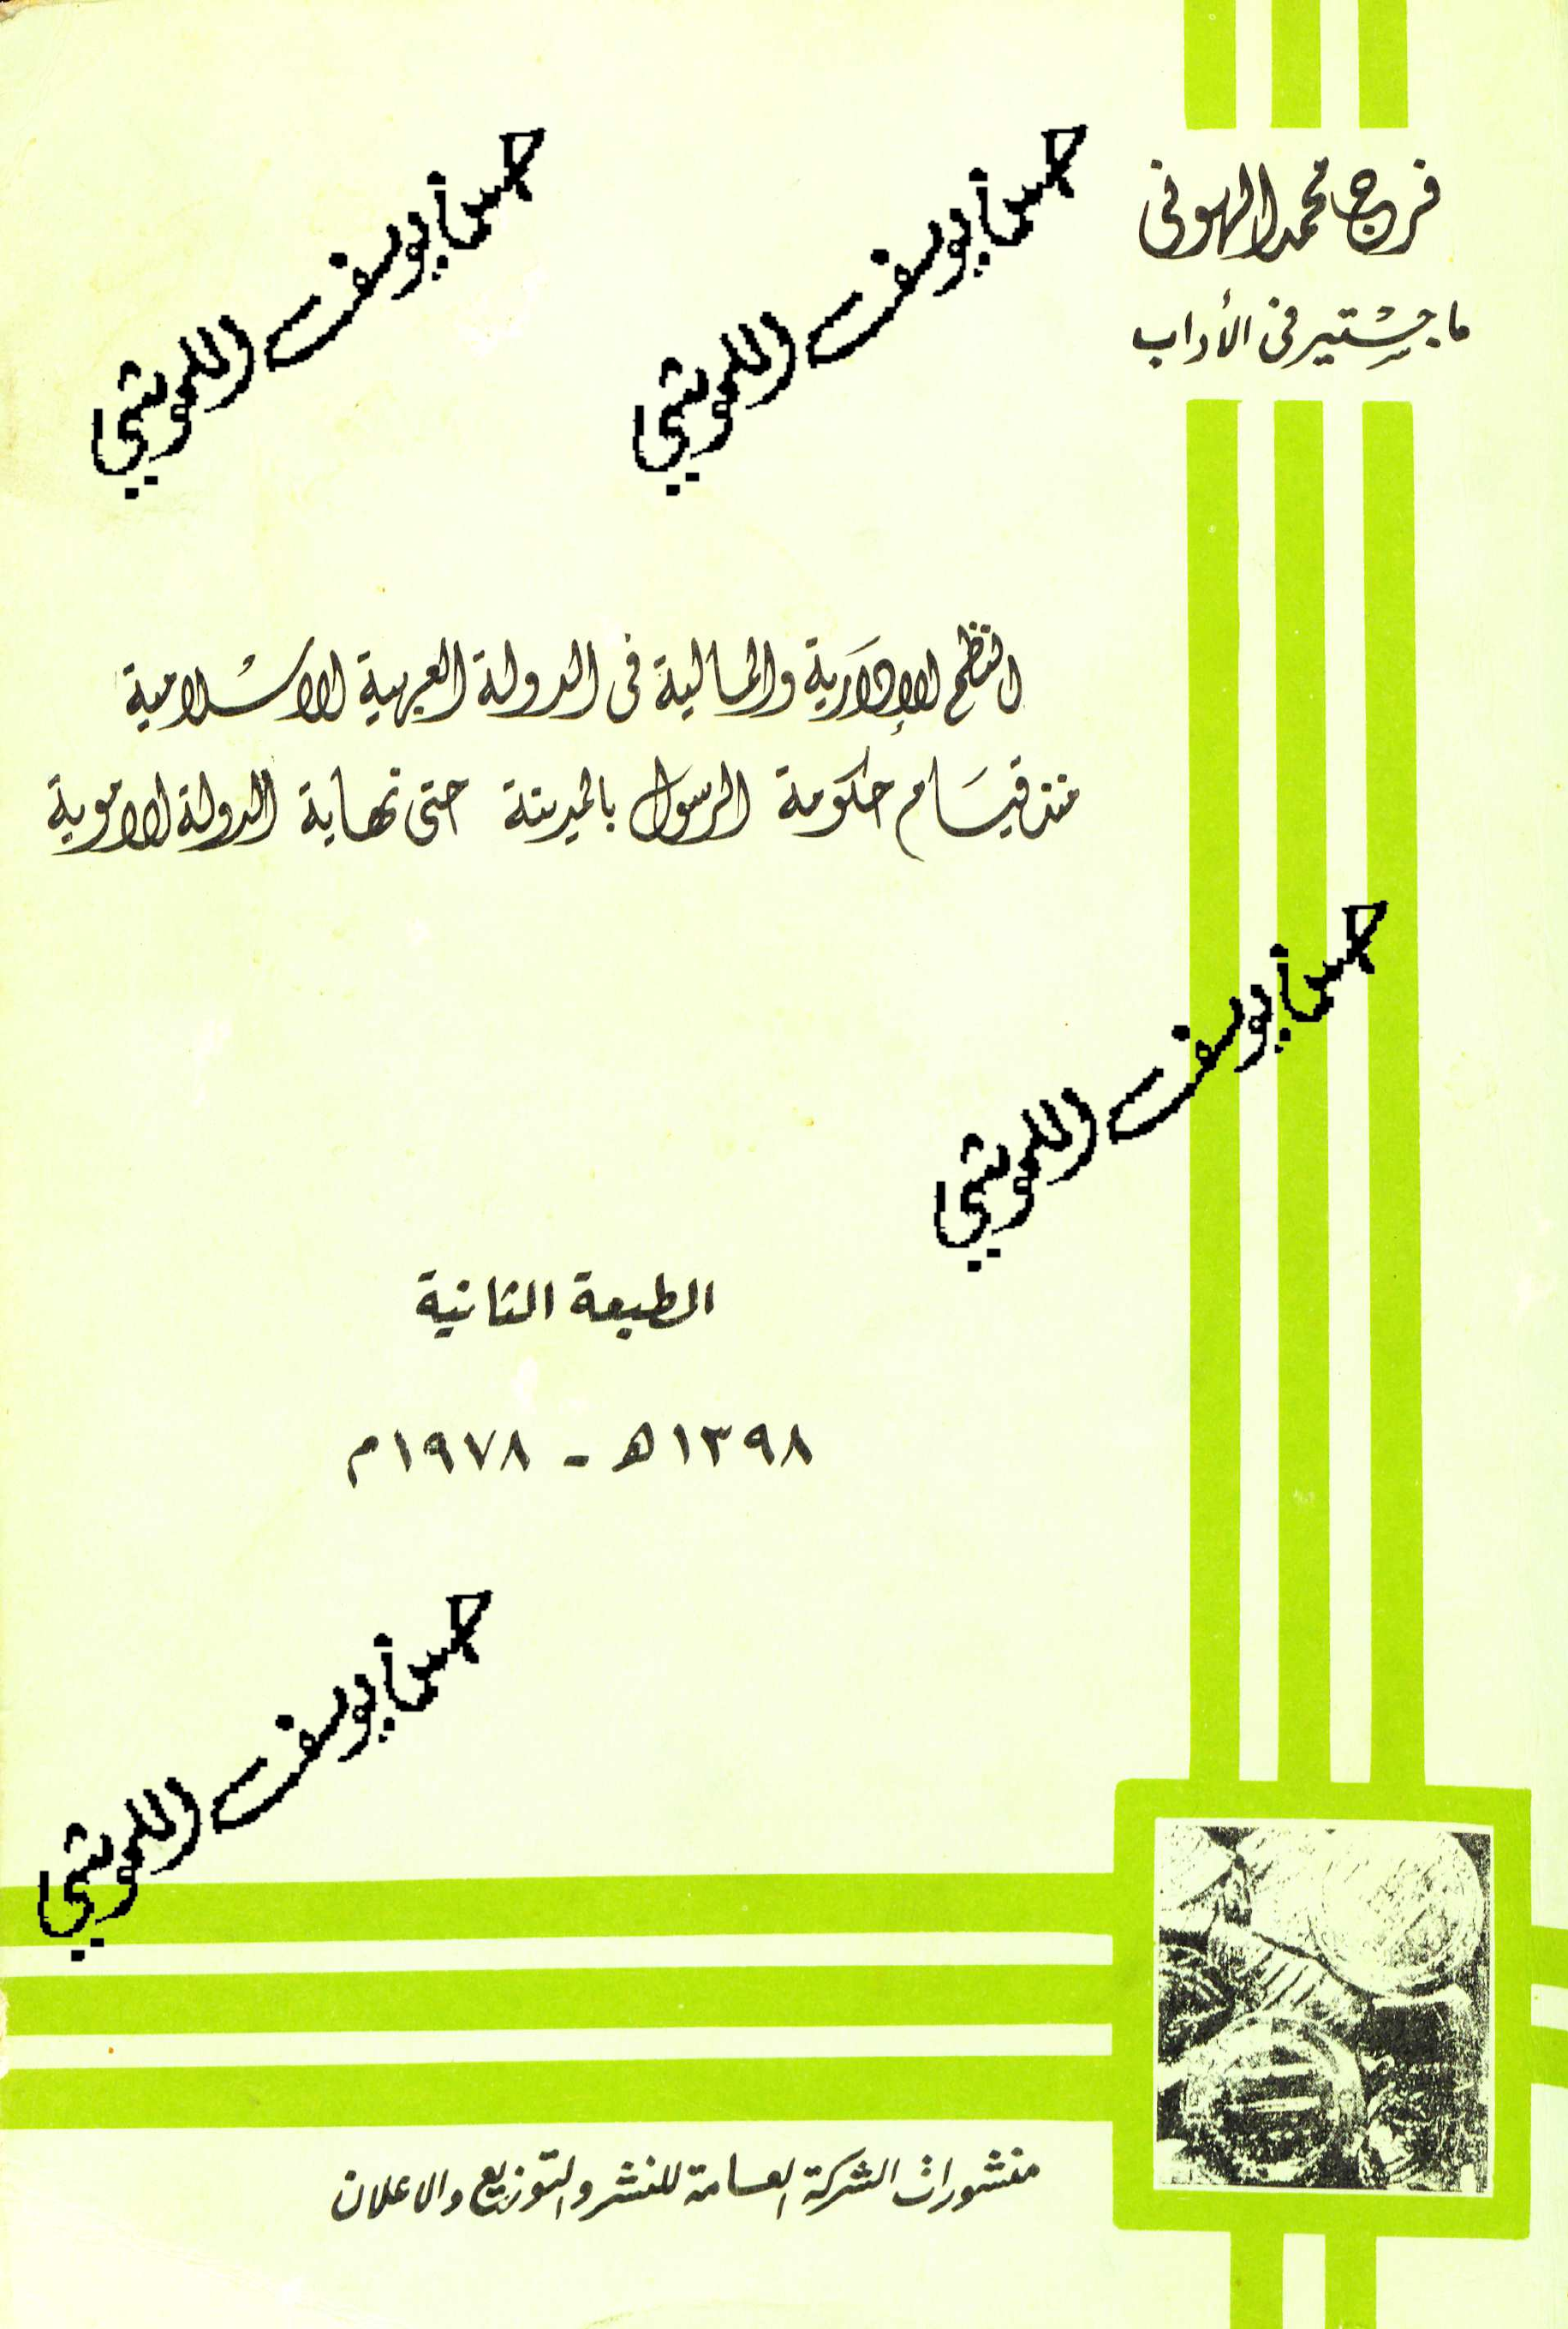 فرج محمد الهونى
ماجستير فى الأداب
حسن يوسف اللموشي
حسن يوسف اللموشي
النظم الإدارية والمالية فى الدولة العربية الاسلامية
منذ قيام حكومة الرسول بالمدينة حتى نهاية الدولة الاموية
حسن يوسف اللموشي
الطبعة الثانية
١٣٩٨ه - ١٩٧٨م
حسن يوسف اللموشي
منشورات الشركة العامة للنشر والتوزيع والاعلان